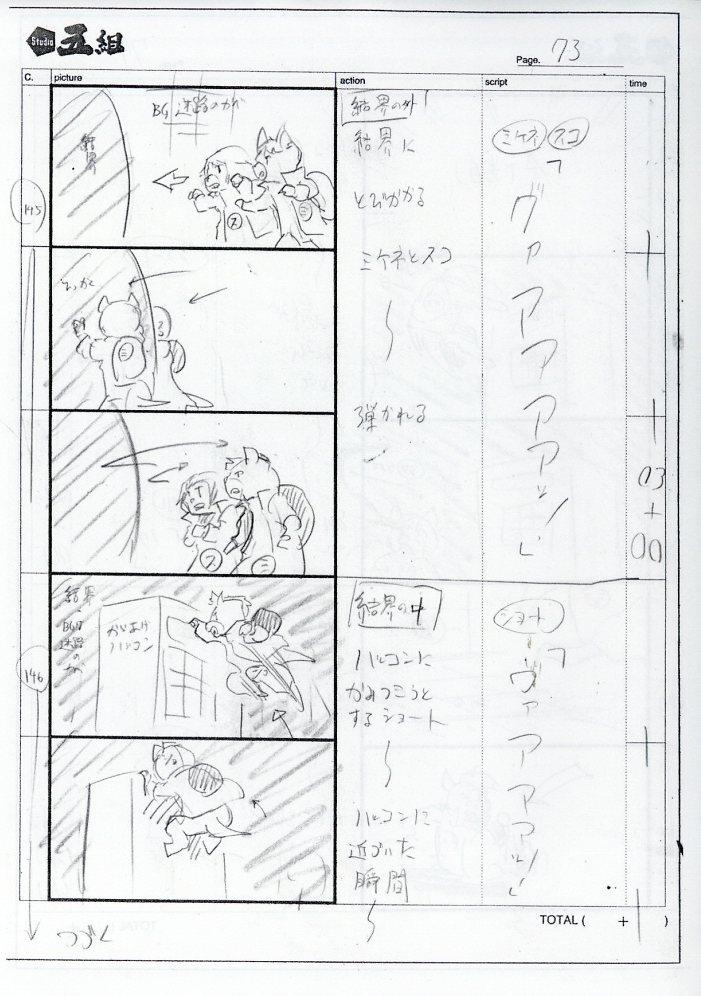 Studio 五組
Page. 73
C. picture action script time
145
BG 迷路のカベ
結界
結界の外
結界に
とびかかる
ミケネとスコ
弾かれる
ミケネ スコ
「ヴァアアアアッ!」
03
+
00
146
結界
BG
迷路のカベ
ハルコン
結界の中
ハルコンに
かみつこうと
するショート
ハルコンに
近づいた
瞬間
ショート
「ヴァアアアッ!」
つづく
TOTAL ( + )